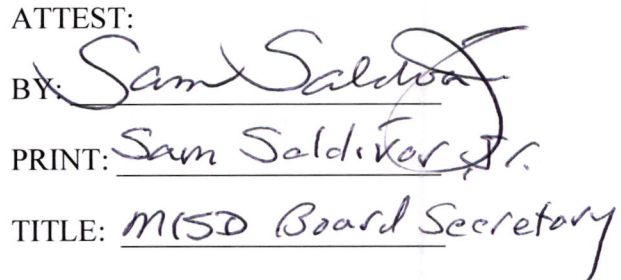 ATTEST:
BY: Sam Saldivar
PRINT: Sam Saldivar Jr.
TITLE: MISD Board Secretary